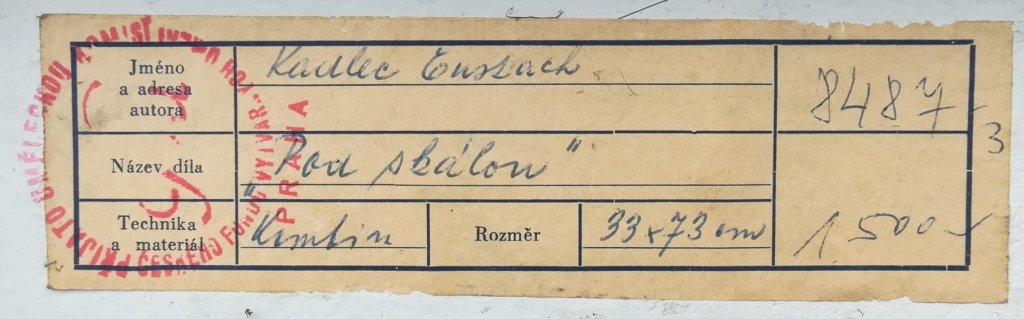 Jméno
a adresa
autora
Kadlec Eustach
8487
3
Název díla
„Pod skálou“
Technika
a materiál
Kombin
Rozměr
33x73 cm
1 500-
PŘIJATO UMĚLECKOU KOMISÍ
ČESKÉHO FONDU VÝTVAR.
PRAHA